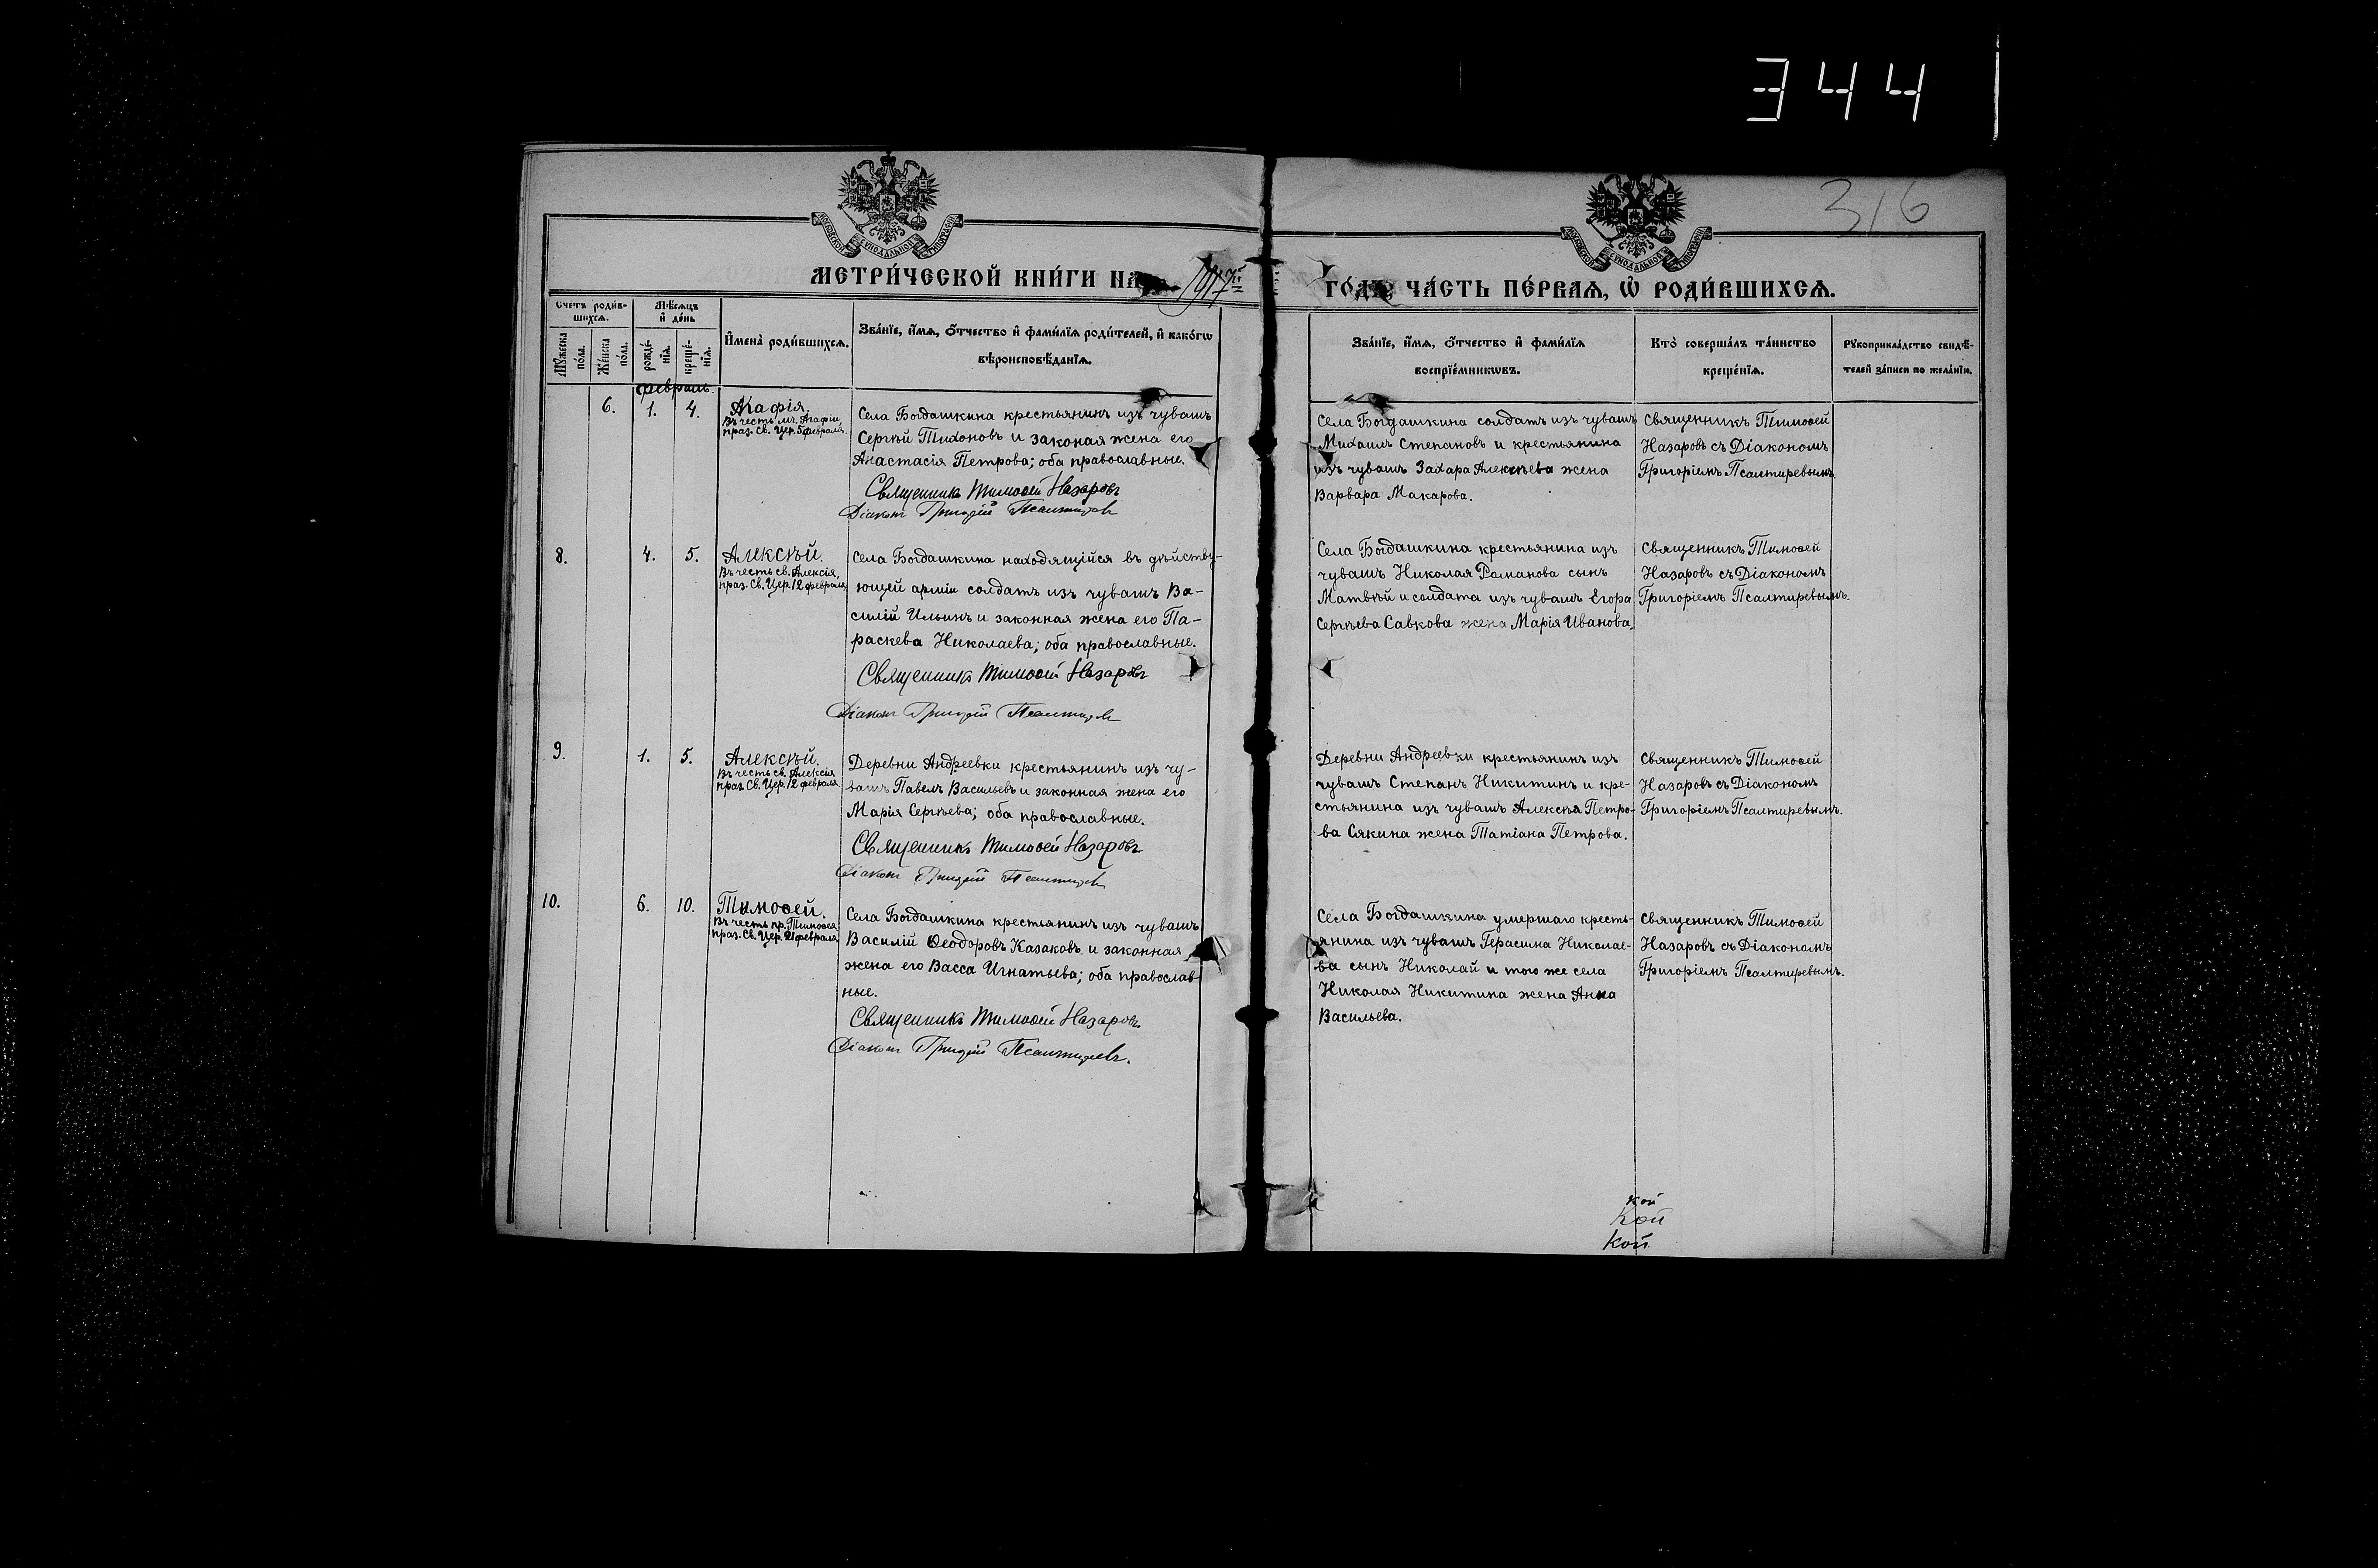 344
316
МОСКОВСКОЙ СѴНОДАЛЬНОЙ ТИПОГРАФІИ
МОСКОВСКОЙ СѴНОДАЛЬНОЙ ТИПОГРАФІИ
МЕТРИ́ЧЕСКОЙ КНИ́ГИ НА 1917й
ГО́ДЪ ЧА́СТЬ ПЕ́РВАѦ, Ѡ РОДИ́ВШИХСѦ.
Счетъ роди́в-
шихсѧ.
Мѣ́сѧцъ
и҆ де́нь
Мꙋжеска
по́ла.
Же́нска
по́ла.
рожде́-
нїѧ.
креще́-
нїѧ.
И҆мена̀ роди́вшихсѧ.
Зва́нїе, и҆́мѧ, ѻ҆́тчество и҆ фами́лїѧ роди́телей, и҆ како́гѡ
вѣроисповѣ́данїѧ.
Зва́нїе, и҆́мѧ, ѻ҆́тчество и҆ фами́лїѧ
воспрїе́мникѡвъ.
Кто̀ соверша́лъ та́инство
креще́нїѧ.
Рꙋкоприкла́дство свидѣ́-
телей за́писи по жела́нїю.
февраль.
6.
1.
4.
Агафія.
Въ честь мч. Агафіи,
праз. Св. Цер. 5 февраля.
Села Богдашкина крестьянинъ изъ чувашъ
Сергѣй Тихоновъ и законая жена его
Анастасія Петрова; оба православные.
Священникъ Тимоѳей Назаровъ
Діаконъ Григорій Псалтиревъ
Села Богдашкина солдатъ изъ чувашъ
Михаилъ Степановъ и крестьянина
изъ чувашъ Захара Алексѣева жена
Варвара Макарова.
Священникъ Тимоѳей
Назаровъ съ Діакономъ
Григоріемъ Псалтиревымъ.
8.
4.
5.
Алексѣй.
Въ честь св. Алексія,
праз. Св. Цер. 12 февраля.
Села Богдашкина находящійся въ дѣйству-
ющей арміи солдатъ изъ чувашъ Ва-
силій Ильинъ и законная жена его Па-
раскева Николаева; оба православные.
Священникъ Тимоѳей Назаровъ
Діаконъ Григорій Псалтиревъ
Села Богдашкина крестьянина изъ
чувашъ Николая Романова сынъ
Матвѣй и солдата изъ чувашъ Егора
Сергѣева Савкова жена Марія Иванова.
Священникъ Тимоѳей
Назаровъ съ Діакономъ
Григоріемъ Псалтиревымъ.
9.
1.
5.
Алексѣй.
Въ честь св. Алексія
праз. Св. Цер. 12 февраля.
Деревни Андреевки крестьянинъ изъ чу-
вашъ Павелъ Васильевъ и законная жена его
Марія Сергѣева; оба православные.
Священникъ Тимоѳей Назаровъ
Діаконъ Григорій Псалтиревъ
Деревни Андреевки крестьянинъ изъ
чувашъ Степанъ Никитинъ и кре-
стьянина изъ чувашъ Алексѣя Петро-
ва Сякина жена Татіана Петрова.
Священникъ Тимоѳей
Назаровъ съ Діакономъ
Григоріемъ Псалтиревымъ.
10.
6.
10.
Тимоѳей.
Въ честь пр. Тимоѳея
праз. Св. Цер. 21 февраля.
Села Богдашкина крестьянинъ изъ чувашъ
Василій Ѳеодоровъ Казаковъ и законная
жена его Васса Игнатьева; оба православ-
ные.
Священникъ Тимоѳей Назаровъ
Діаконъ Григорій Псалтиревъ.
Села Богдашкина умершаго кресть-
янина изъ чувашъ Герасима Николае-
ва сынъ Николай и того же села
Николая Никитина жена Анна
Васильева.
Священникъ Тимоѳей
Назаровъ съ Діакономъ
Григоріемъ Псалтиревымъ.
кой
кой
кой